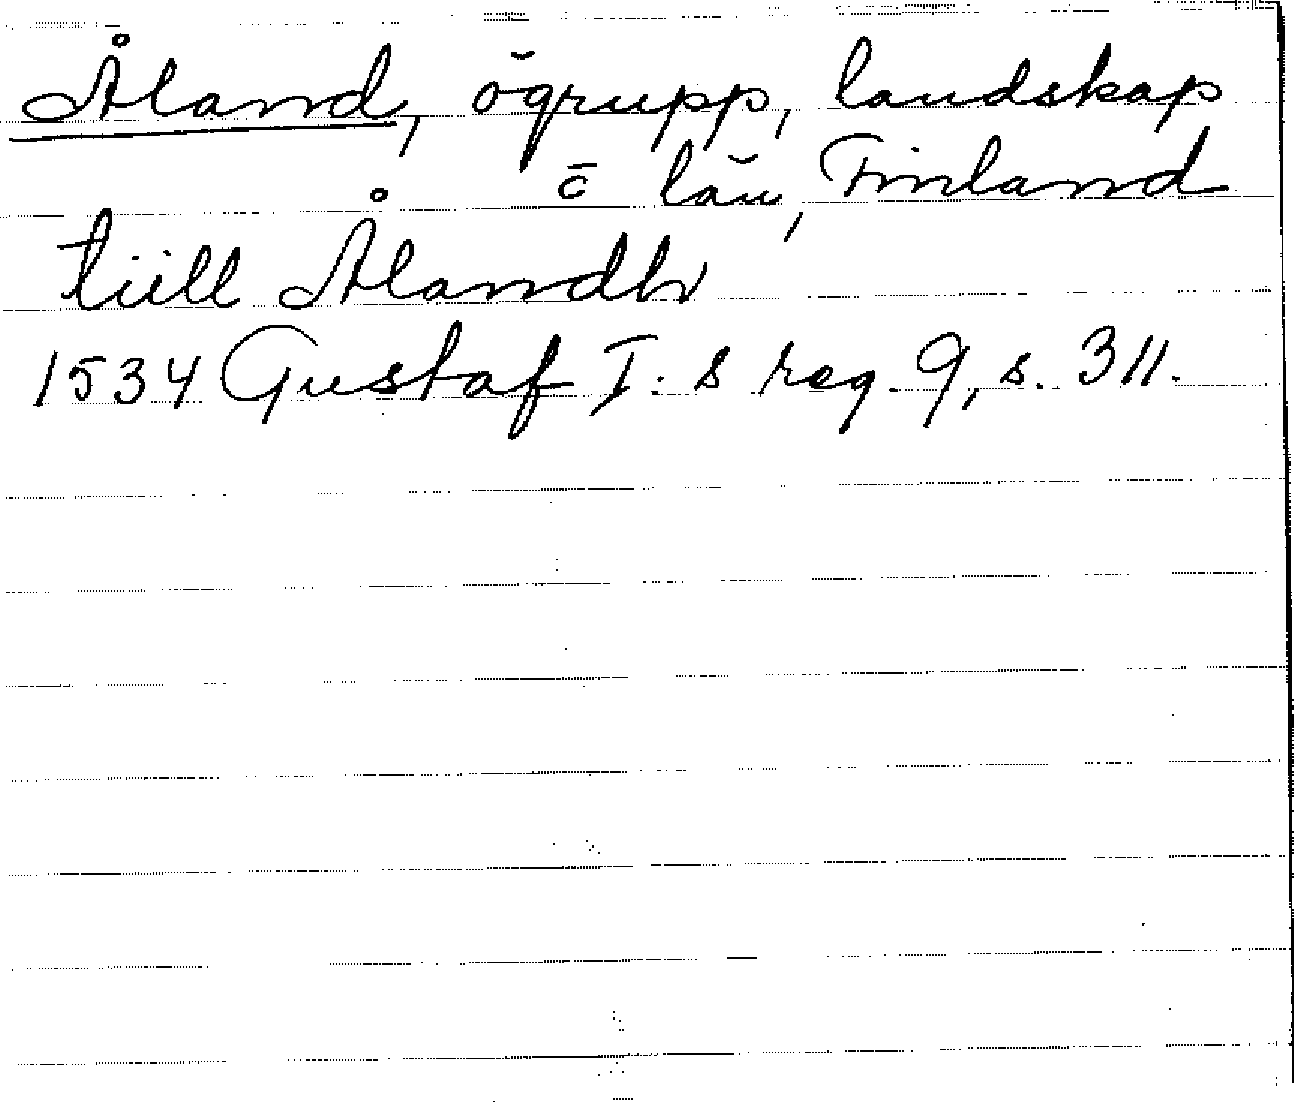 Åland, ögrupp, landskap
o län, Finland
tiill Ålandh
1534 Gustaf I:s reg. 9, s. 311.